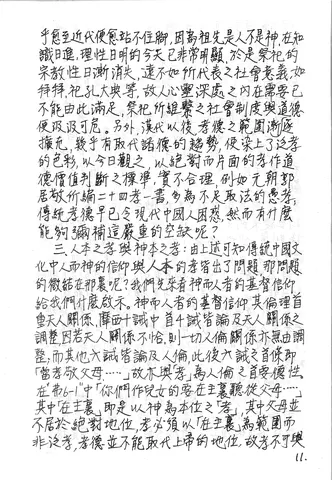 乎愈至近代便愈站不住腳,因為祖先是人不是神,在知
識日進,理性日明的今天已非常明顯,於是祭祀的
宗教性日漸消失,遠不如所代表之社會意義,如
拜拜,祀孔大典等,故人心靈深處之內在需要已
不能由此滿足,祭祀所維繫之社會制度與道德
便岌岌可危。另外,漢代以後,孝德之範圍漸廣
擴充,幾乎有取代諸德的趨勢,使染上了泛孝
的色彩,以今日觀之,以絕對而片面的孝作道
德價值判斷之標準,實不合理,例如元朝郭
居敬所編二十四孝一書,多為不足取法的愚孝;
傳統孝德早已令現代中國人困惑,然而有什麼
能夠彌補這嚴重的空缺呢?
三、人本之孝與神本之孝:由上述可知傳統中國文
化中人而神的信仰與人本的孝皆出了問題,那問題
的徵結在那裏呢?我們先來看神而人者的基督信仰
給我們什麼啟示。神而人者的基督信仰,其倫理首
重天人關係,摩西十誡中首4誡皆論及天人關係之
調整,因若天人關係不恰,則一切人倫關係亦無由調
整;而其他六誡皆論及人倫,此後六誡之首條即
「當孝敬父母……」故亦與孝為人倫之首要德性。
在"弗6-1"中「你們作兒女的要在主裏聽從父母……」
其中「在主裏」即是以神為本位之「孝」,其中父母並
不居於絕對地位,孝必須以「在主裏」為範圍而
非泛孝,孝德並不能取代上帝的地位,故孝不可與
11.